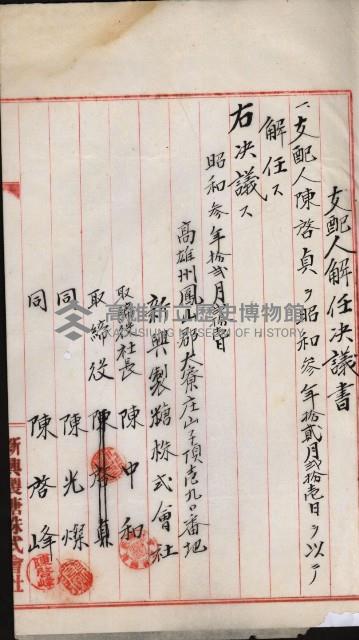 支配人解任決議書
一、支配人陳啓貞ヲ昭和参年拾貳月貳拾壱日ヲ以テ
解任ス
右決議ス
昭和参年拾貳月
高雄州鳳山郡大寮庄山子頂壱九〇番地
新興製糖株式會社
取締役社長 陳中和
取締役 陳啓貞
同 陳光燦
同 陳啓峰
新興製糖株式會社
高雄市立歷史博物館
KAOHSIUNG MUSEUM OF HISTORY